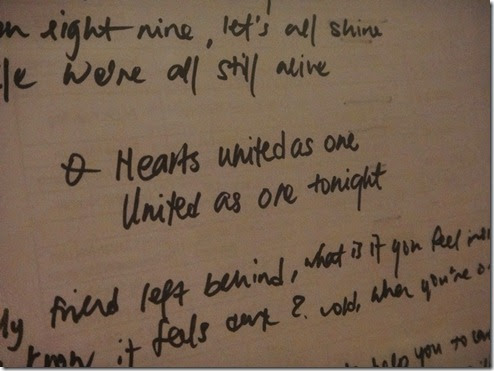 eight nine, let's all shine
we're all still alive
Hearts united as one
United as one tonight
friend left behind, what is it you feel
it feels dark & cold, when you're
you to